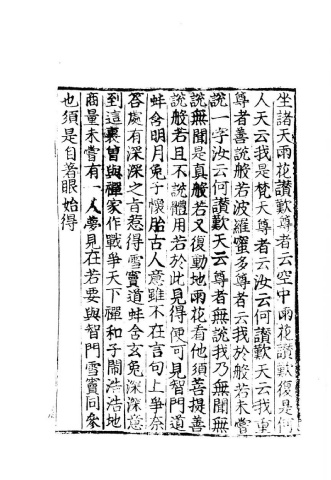 坐諸天雨花讃歎尊者云空中雨花讃歎復是何
人天云我是梵天尊者云汝云何讃歎天云我重
尊者善說般若波羅蜜多尊者云我於般若未嘗
說一字汝云何讃歎天云尊者無說我乃無聞無
說無聞是真般若又復動地雨花看他須菩提善
說般若且不說體用若於此見得便可見智門道
蚌含明月兔子懷胎古人意雖不在言句上爭奈
答處有深深之肯惹得雪竇道蚌含玄兔深深意
到這裏曽與禪家作戰爭天下禪和子閙浩浩地
商量未嘗有一人夢見在若要與智門雪竇同叅
也須是自著眼始得